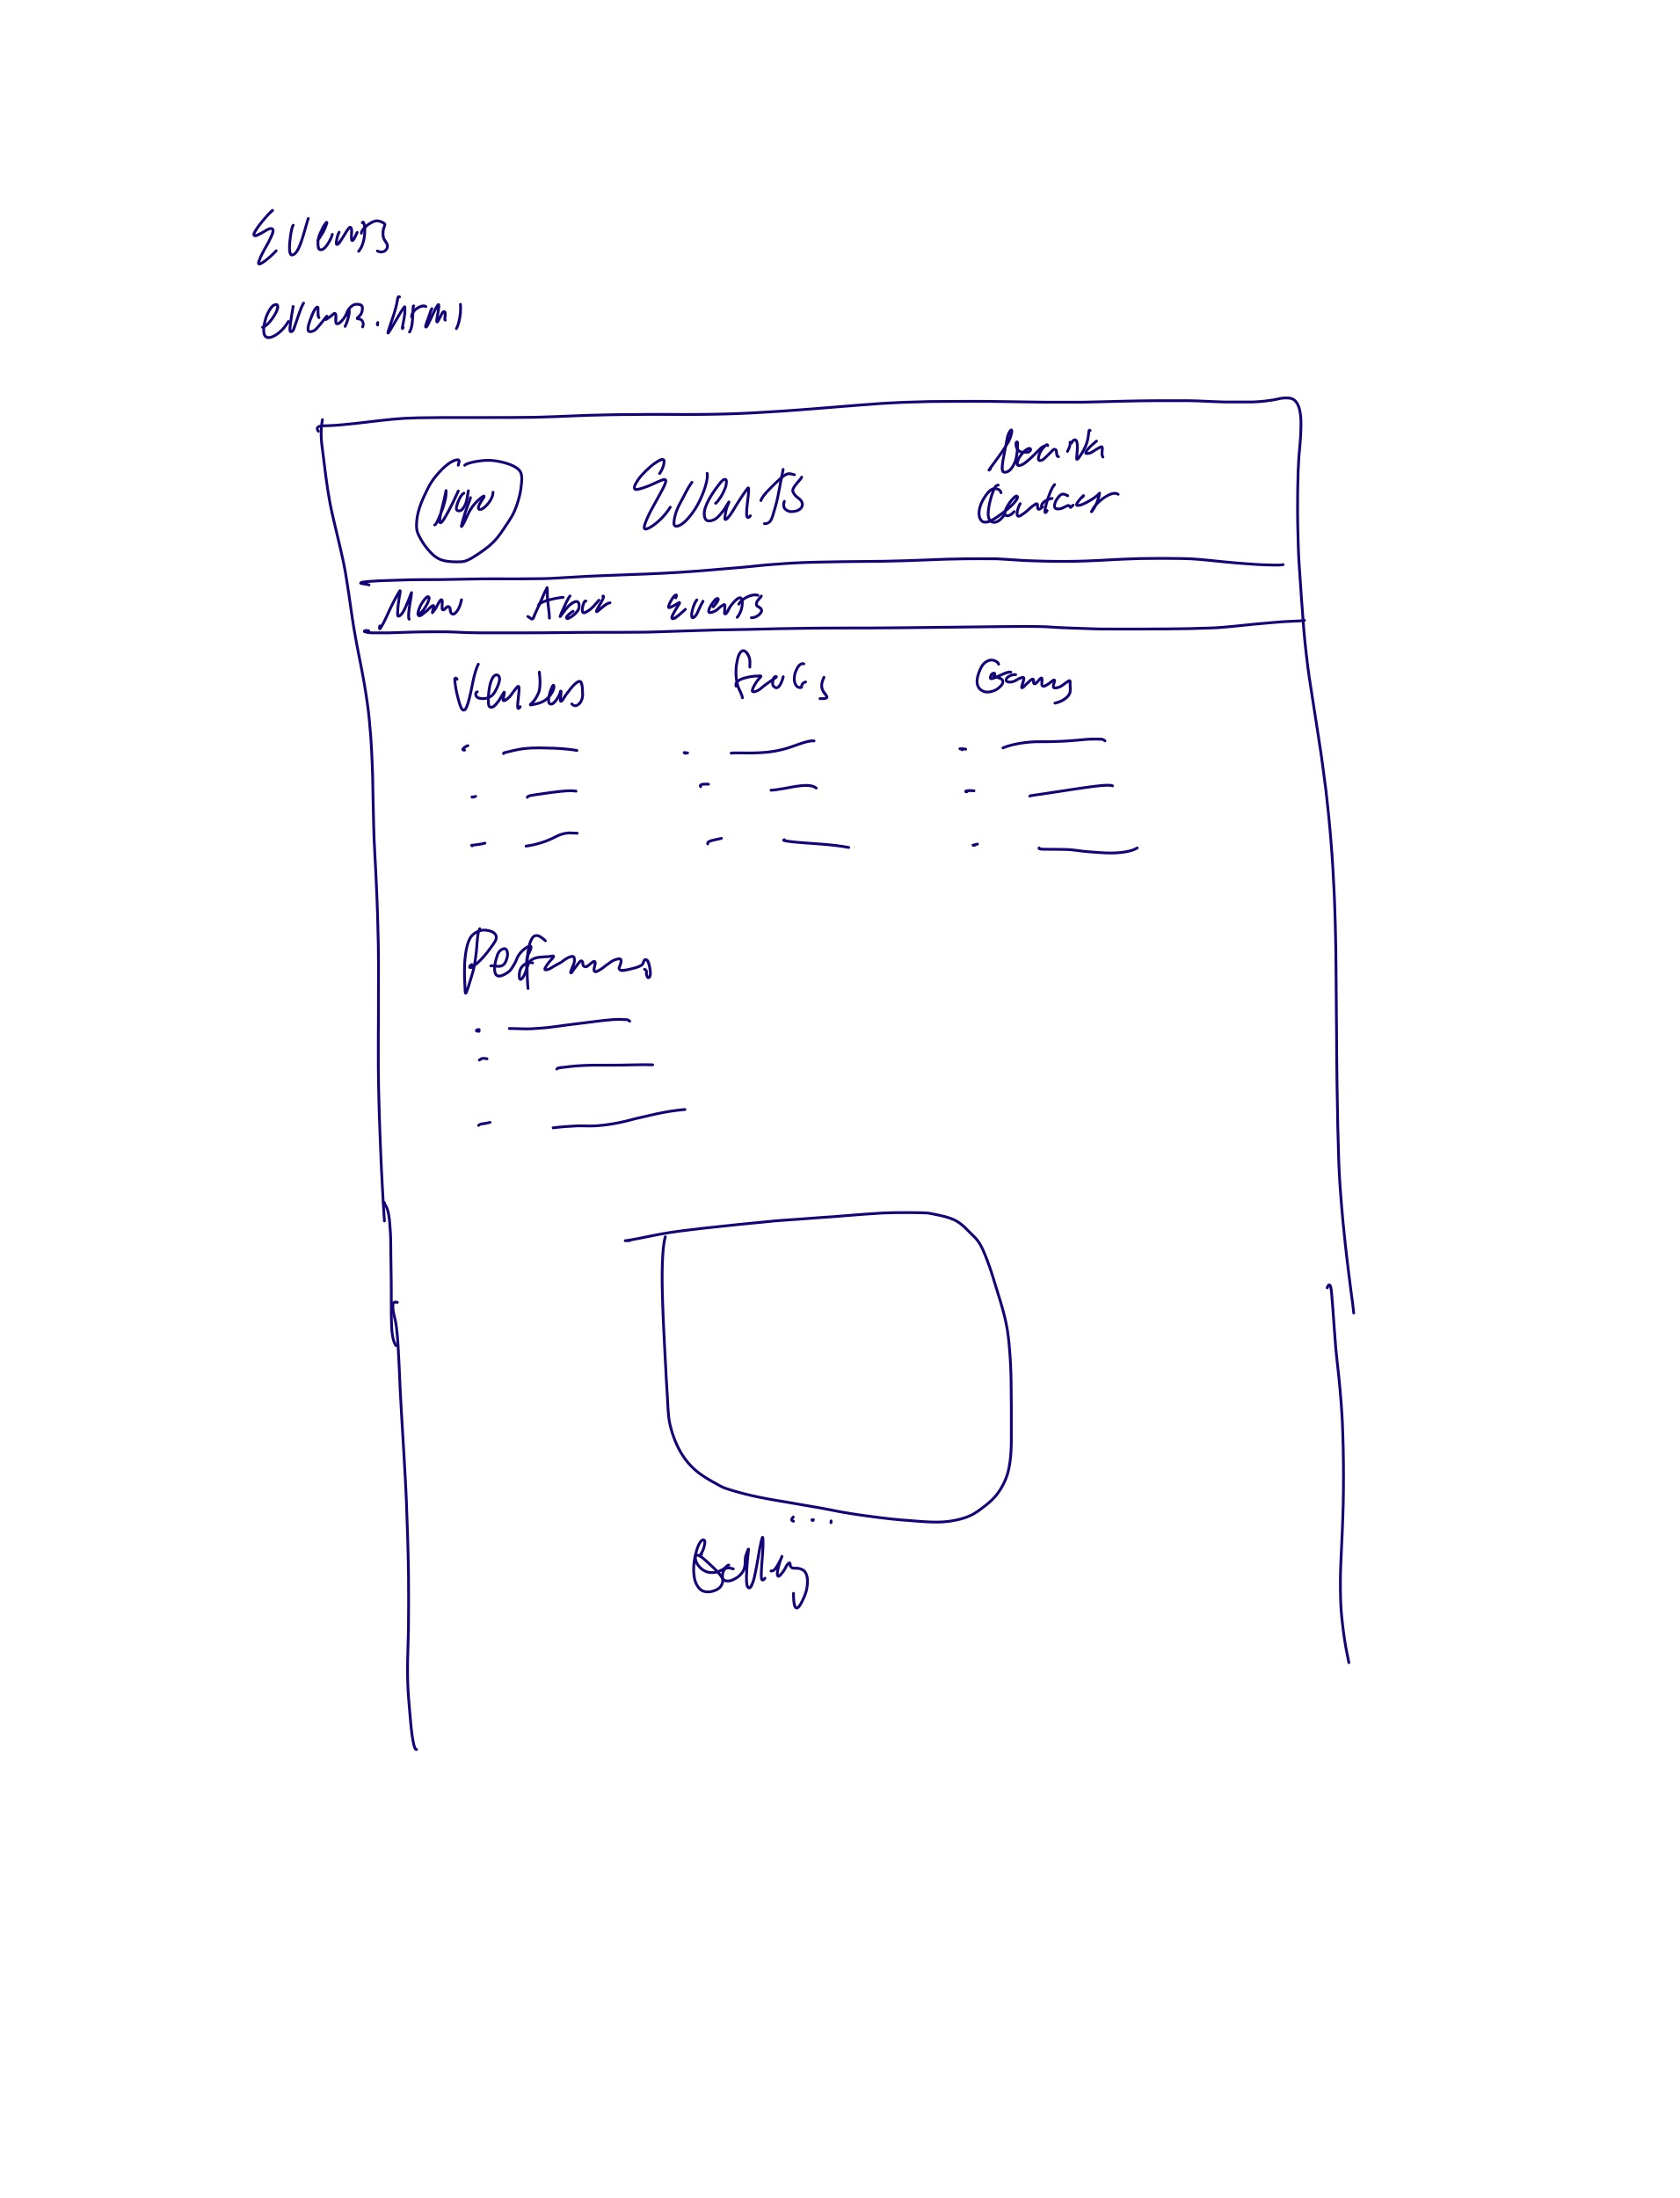 Events
events.html
logo Events Search
Calendar
Menu About Events
Vendors Food Games
Performers
Gallery